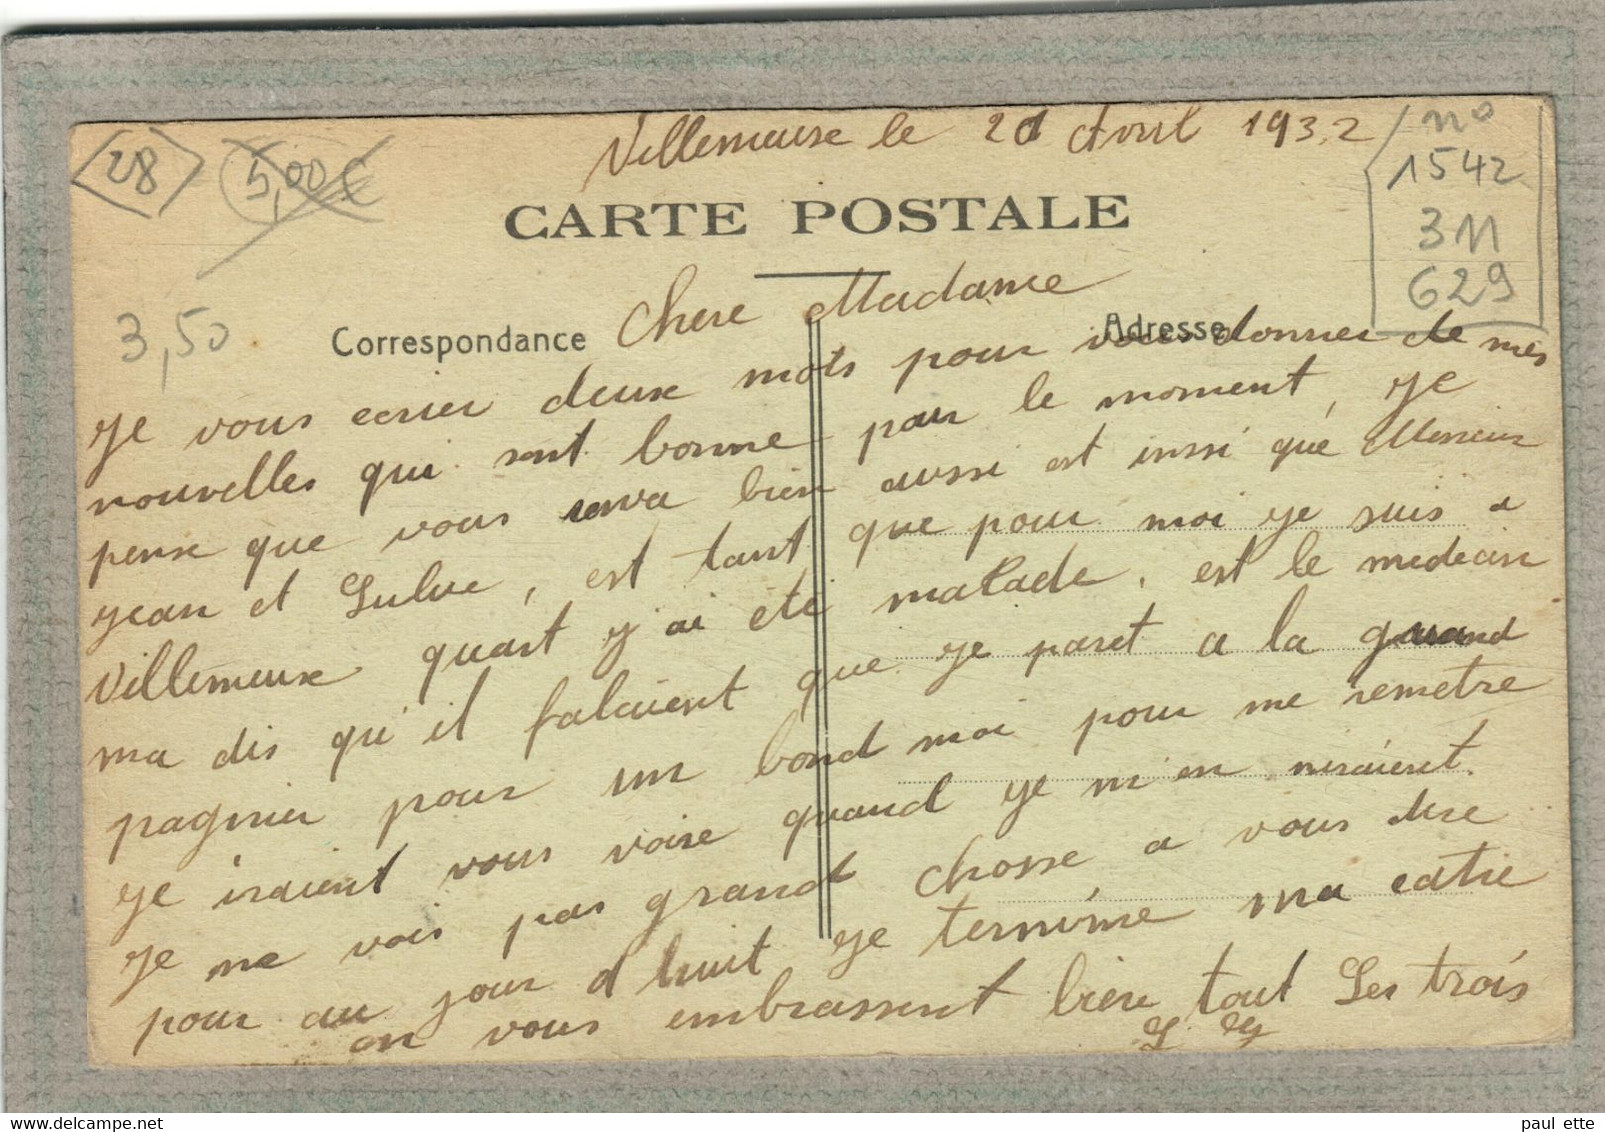 Villemeuse le 21 Aout 1932
n° 1542
311
629
28
5,00€
3,50
CARTE POSTALE
Correspondance
Adresse
Chere Madame
Je vous ecrier deux mots pour vous donner de mes
nouvelles qui sont bonne pour le moment, Je
pense que vous bien aussi est inssi que Messieur
Jean et Lulue, est tant que pour moi je suis a
Villemeuse quart j'ai été malade, est le medecin
ma dis qu'il falaient que je paret a la grand
pagnier pour un bond moi pour me remetre
Je iraient vous voire quand je m'en niraieret.
Je ne vois pas grand chosse a vous dire
pour au jour d huit je termime ma catre
en vous embrassent biere tout Les trois
L G
delcampe.net
paul ette